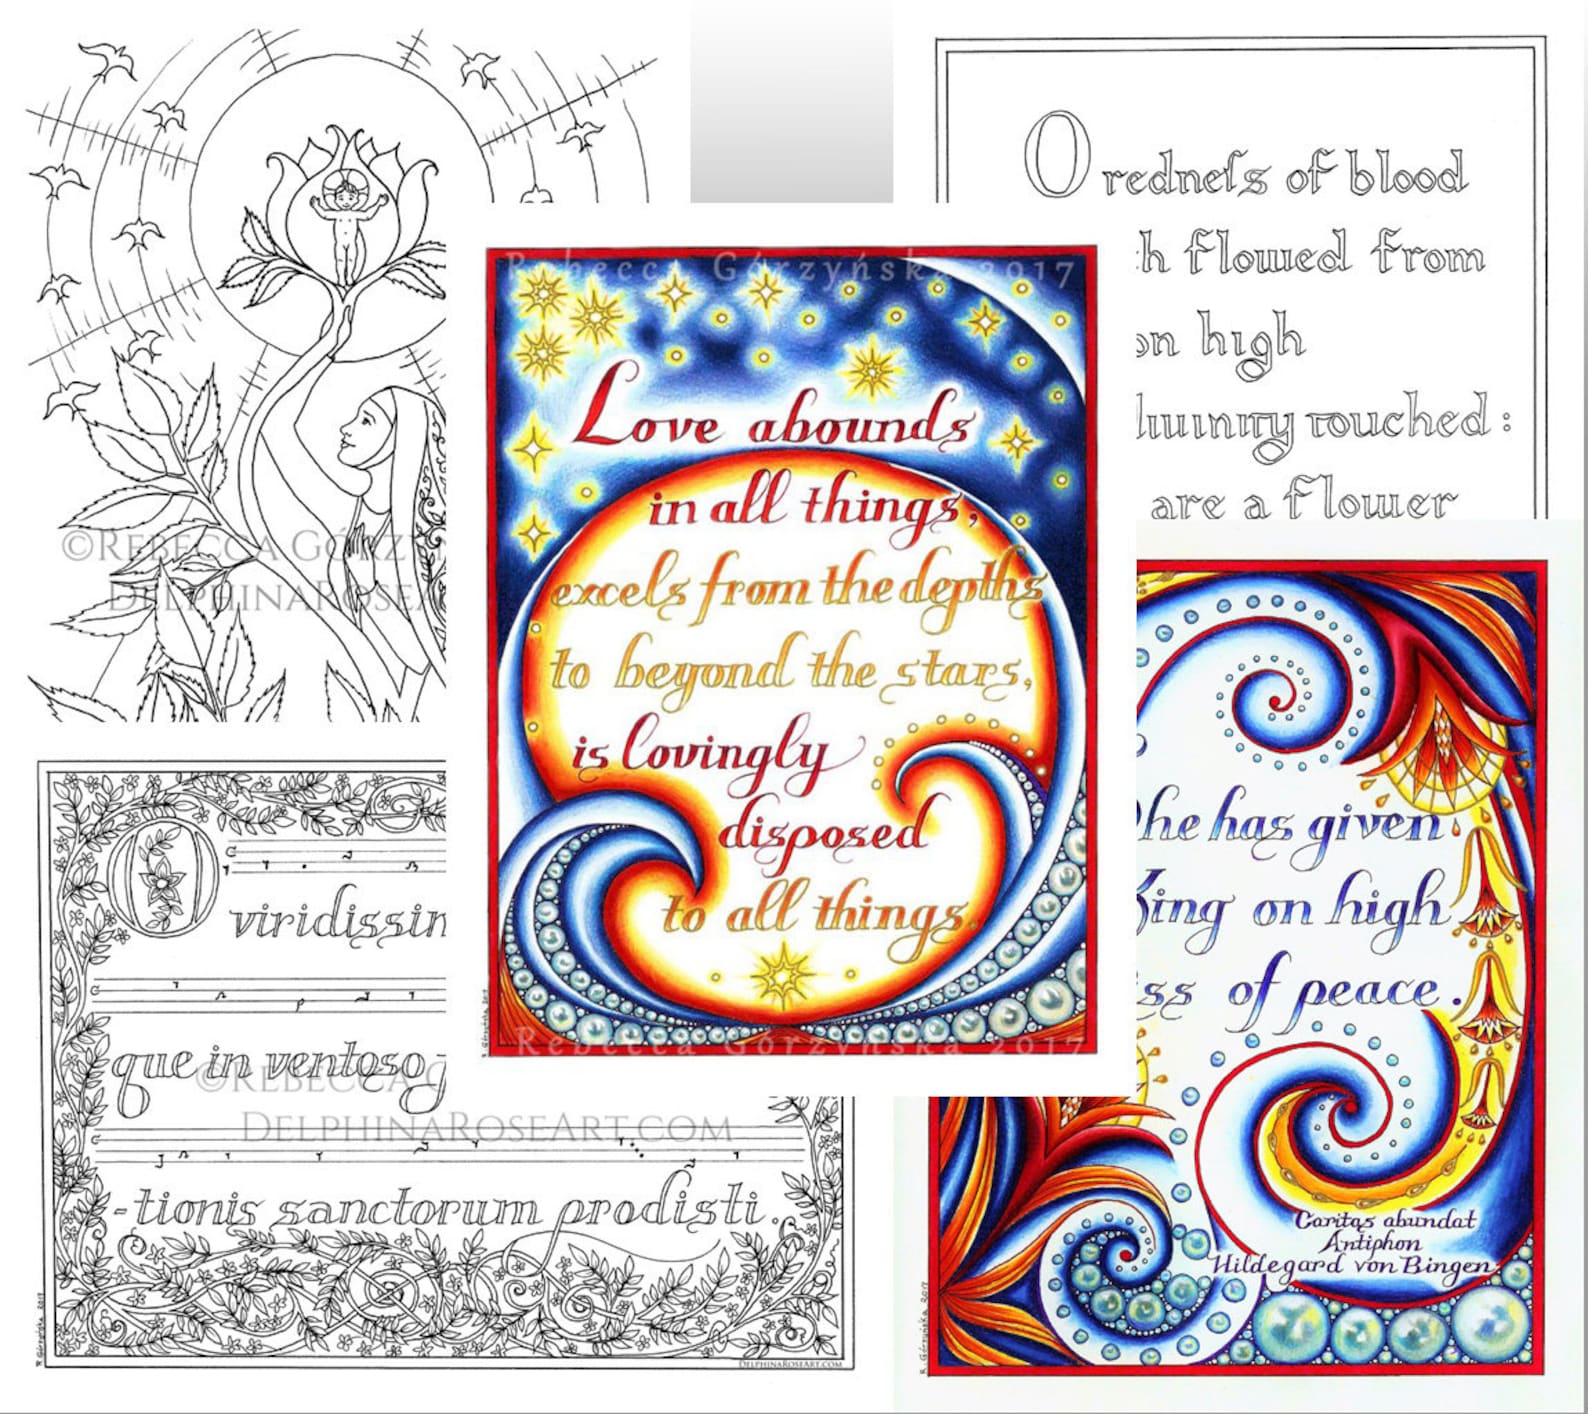 ©Rebecca Górzy
DelphinaRoseA
O redneſs of blood
h flowed from
on high
divinity touched:
are a flower
Rebecca Górzyńska 2017
Love abounds
in all things,
excels from the depths
to beyond the stars,
is lovingly
disposed
to all things.
R. Górzyńska 2017
Rebecca Górzyńska 2017
O
viridissim
que in ventoso
©Rebecca G
DelphinaRoseArt.com
-tionis sanctorum prodisti.
R. Górzyńska 2017
DelphinaRoseArt.com
he has given
King on high
ss of peace.
Caritas abundat
Antiphon
Hildegard von Bingen
R. Górzyńska 2017